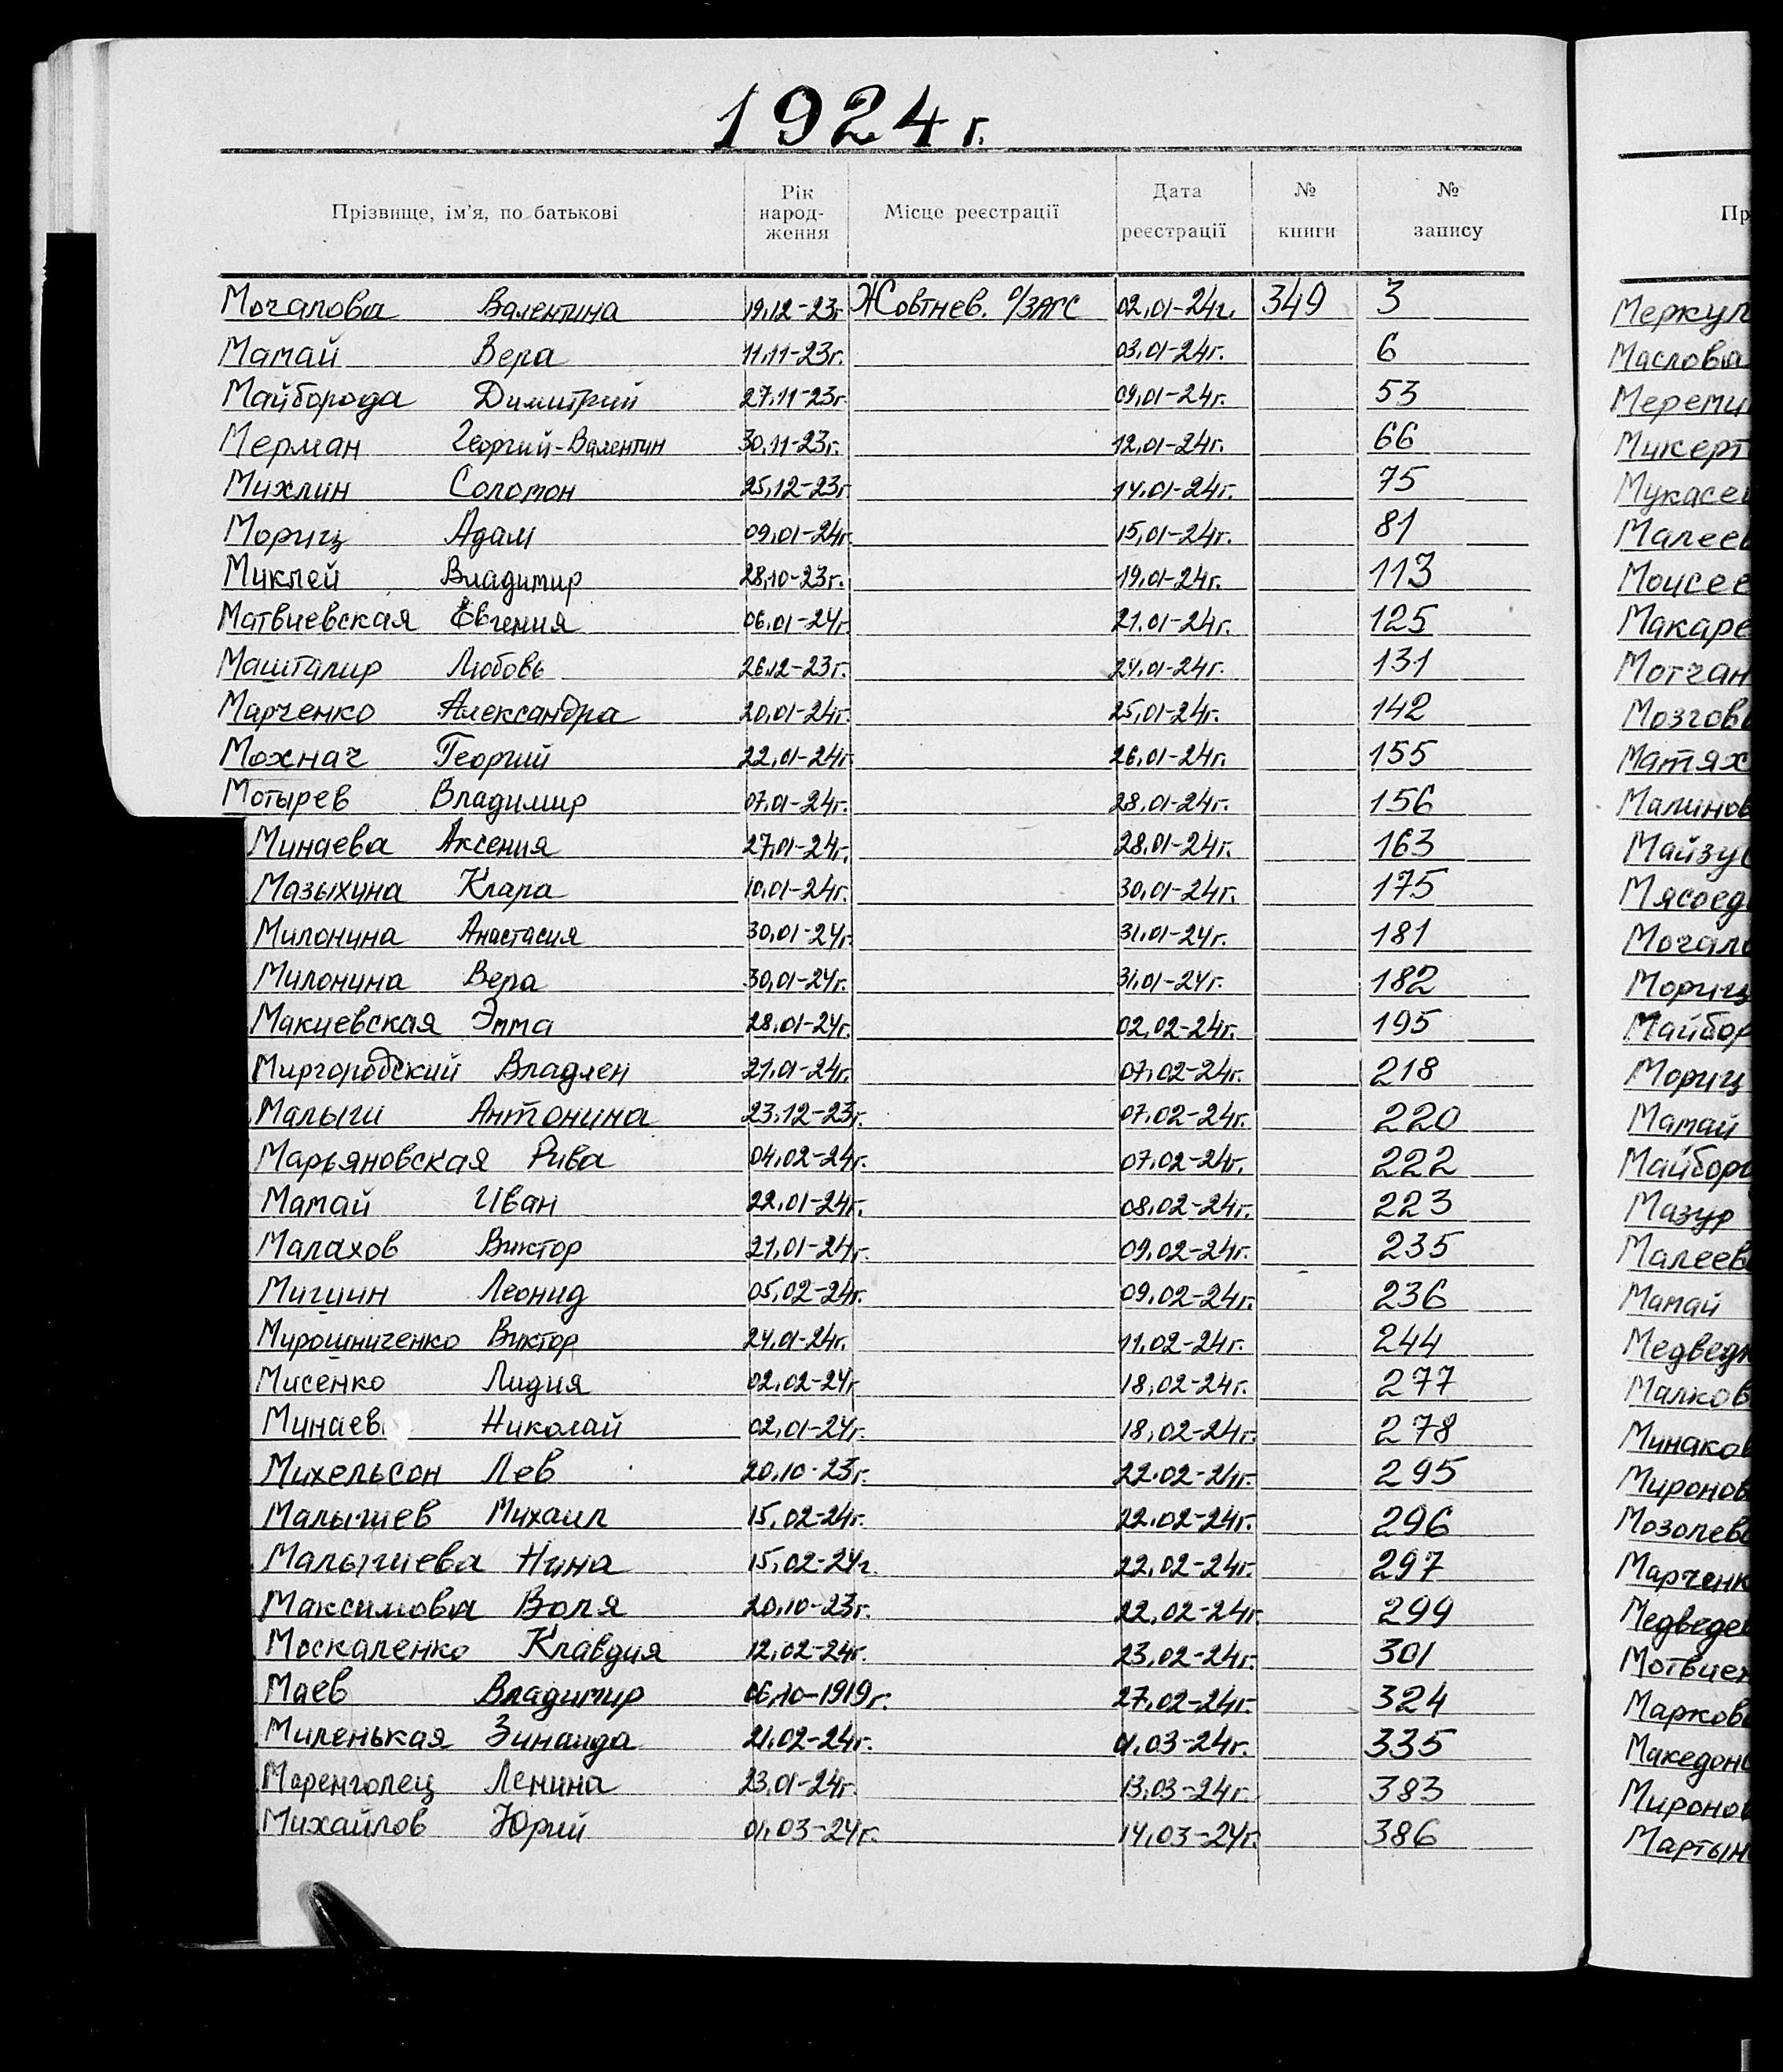 1924 г.
Прізвище, ім'я, по батькові Рік народ-ження Місце реєстрації Дата реєстрації № книги № запису
Мочалова Валентина 19.12-23г Жовтнев. о/ЗАГС 02.01-24г. 349 3
Мамай Вера 11.11-23г. 03.01-24г. 6
Майборода Димитрий 27.11-23г 09.01-24г. 53
Мерман Георгий-Валентин 30.11-23г. 12.01-24г. 66
Михлин Соломон 25.12-23г 14.01-24г. 75
Мориц Адам 09.01-24г. 15.01-24г. 81
Миклей Владимир 28.10-23г. 19.01-24г. 113
Матвиевская Евгения 06.01-24г. 21.01-24г. 125
Машталир Любовь 26.12-23г. 24.01-24г. 131
Марченко Александра 20.01-24г. 25.01-24г. 142
Мохнач Георгий 22.01-24г. 26.01-24г. 155
Мотырев Владимир 07.01-24г. 28.01-24г. 156
Минаева Аксения 27.01-24г. 28.01-24г. 163
Мазыхина Клара 10.01-24г. 30.01-24г. 175
Милонина Анастасия 30.01-24г. 31.01-24г. 181
Милонина Вера 30.01-24г. 31.01-24г. 182
Макиевская Эмма 28.01-24г. 02.02-24г. 195
Миргородский Владлен 21.01-24г. 07.02-24г. 218
Малыги Антонина 23.12-23г. 07.02-24г. 220
Марьяновская Рива 04.02-24г. 07.02-24г. 222
Мамай Иван 22.01-24г. 08.02-24г. 223
Малахов Виктор 21.01-24г. 09.02-24г. 235
Мишин Леонид 05.02-24г. 09.02-24г. 236
Мирошниченко Виктор 24.01-24г. 11.02-24г. 244
Мисенко Лидия 02.02-24г 18.02-24г. 277
Минаев Николай 02.01-24г. 18.02-24г. 278
Михельсон Лев 20.10-23г. 22.02-24г. 295
Малышев Михаил 15.02-24г. 22.02-24г. 296
Малышева Нина 15.02-24г. 22.02-24г. 297
Максимова Воля 20.10-23г. 22.02-24г 299
Москаленко Клавдия 12.02-24г. 23.02-24г. 301
Маев Владимир 06.10-1919г. 27.02-24г. 324
Миленькая Зинаида 21.02-24г. 01.03-24г. 335
Маренголец Ленина 23.01-24г. 13.03-24г. 383
Михайлов Юрий 01.03-24г. 14.03-24г. 386
Пр
Меркул
Маслова
Мереми
Микерт
Мукасе
Малеев
Моисее
Макаре
Мотчан
Мозгов
Матях
Малинов
Майзу
Мясоед
Мочал
Мориц
Майбор
Мориц
Мамай
Майборо
Мазур
Малеев
Мамай
Медвед
Малков
Минаков
Миронов
Мозолев
Марченк
Медведе
Мотвиен
Марков
Македон
Миронов
Мартын